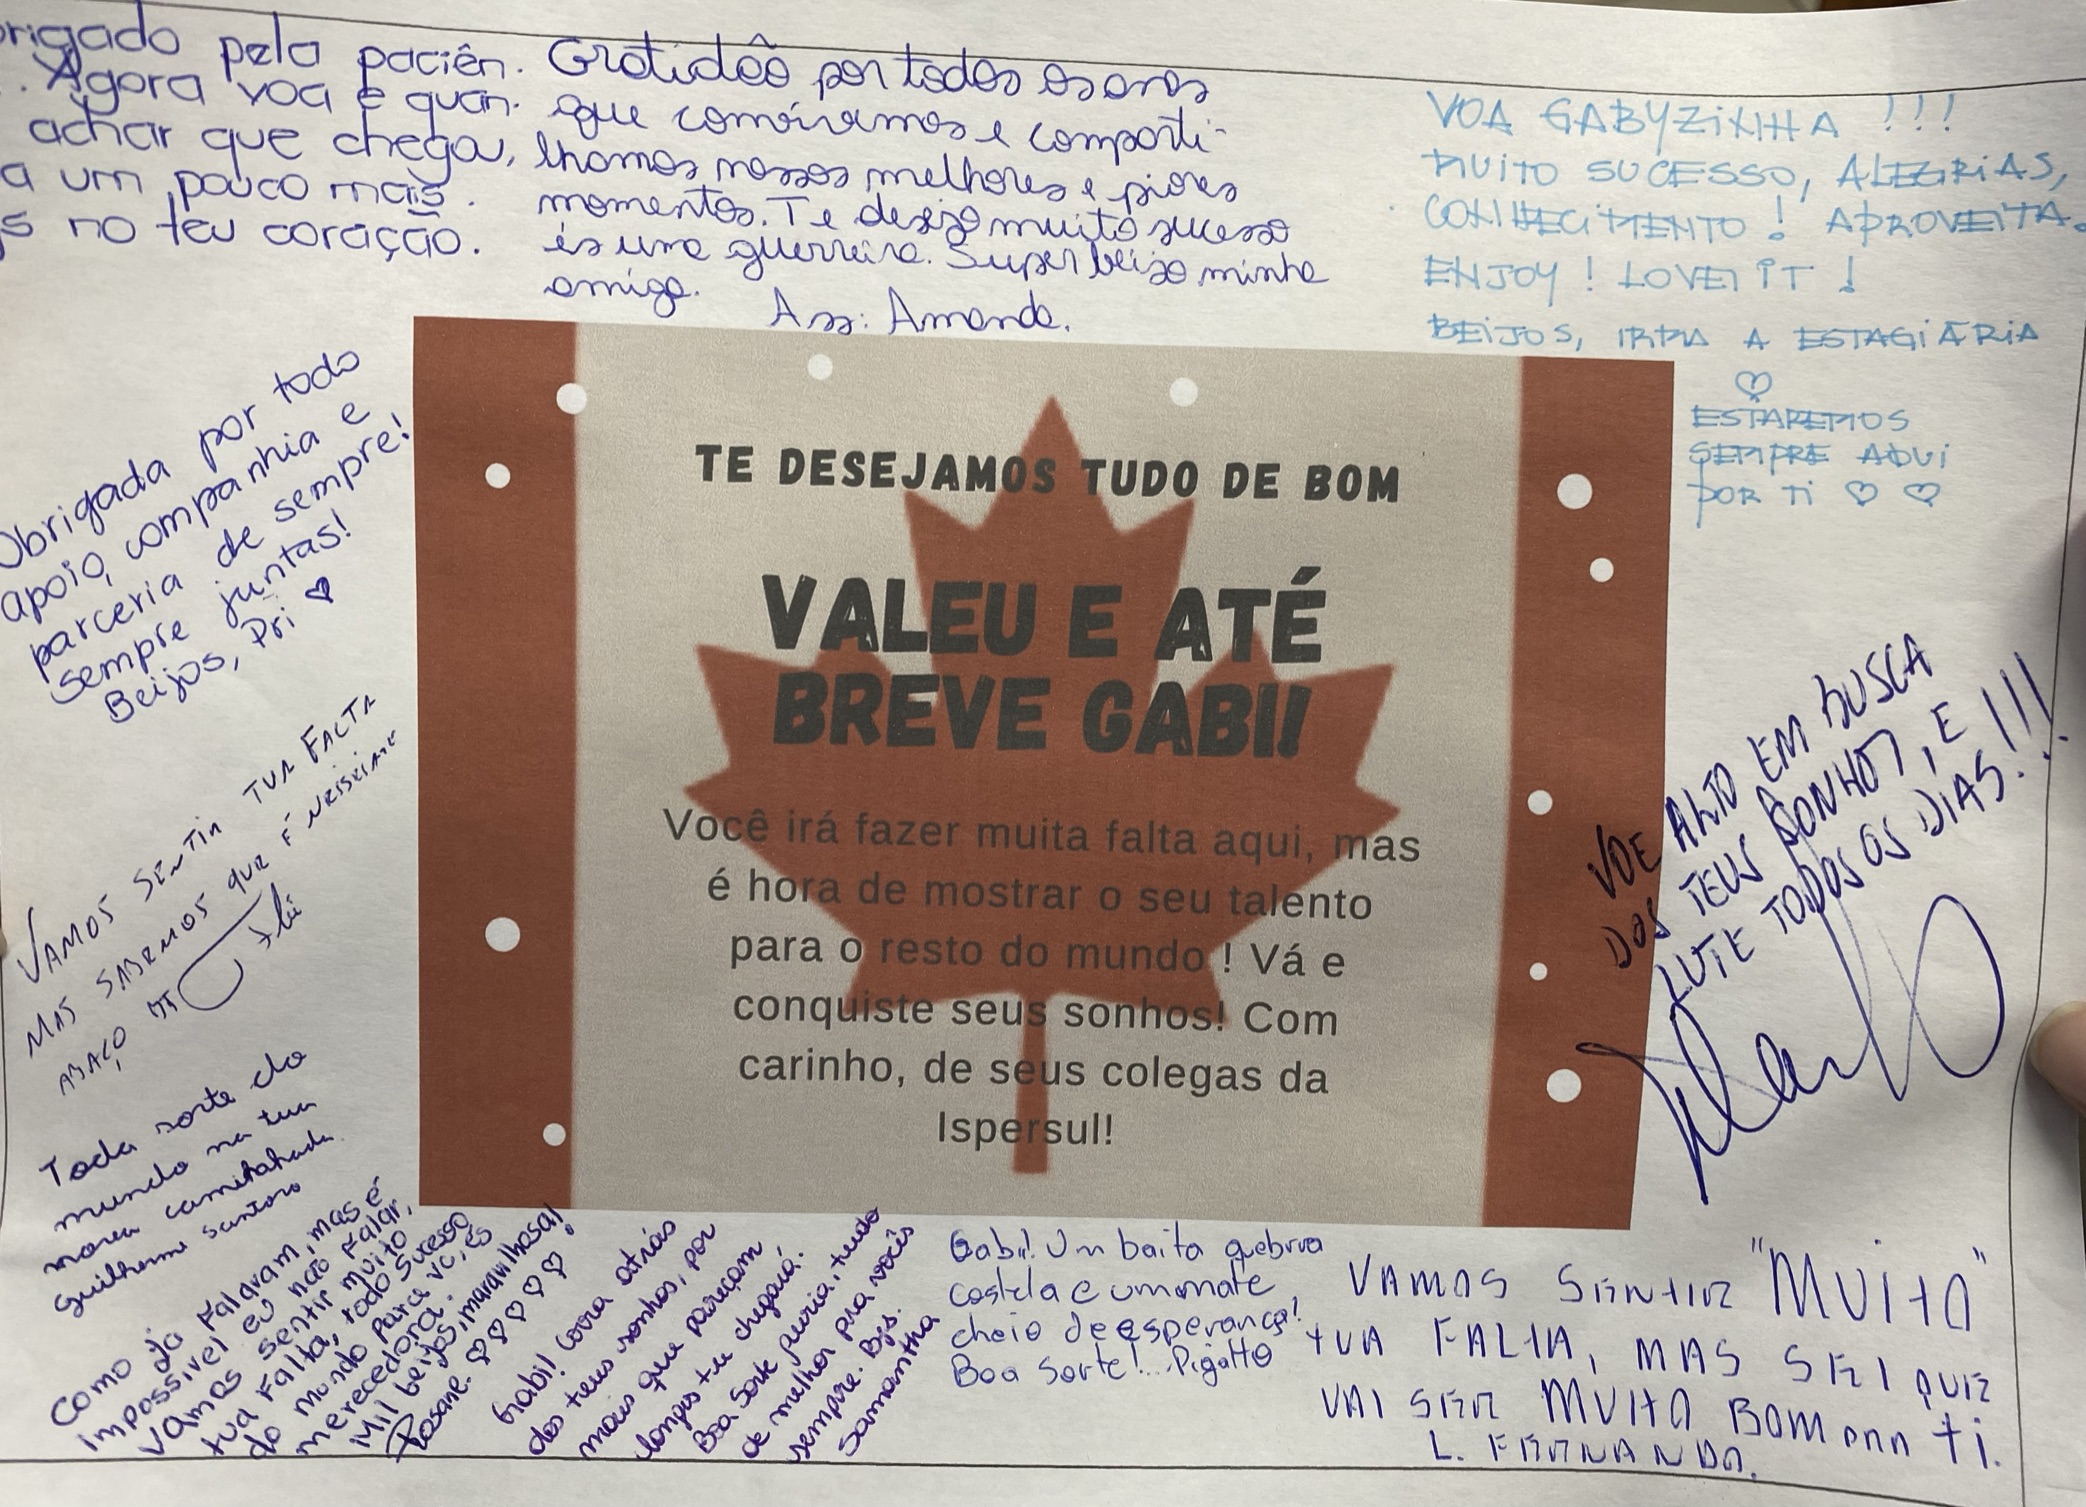 brigado pela paciên.
. Agora voa e quan.
achar que chega,
a um pouco mais.
s no teu coração.
Gratidão por todos os anos
que convivemos e comparti-
lhamos nossos melhores e piores
momentos. Te desejo muito sucesso
és uma guerreira. Super beijo minha
amiga.
Ass: Amanda.
VOA GABYZIXIHA !!!
MUITO SUCESSO, ALEGRIAS,
CONHECIMENTO! APROVEITA.
ENJOY! LOVE IT!
BEIJOS, IRMA A ESTAGIÁRIA
♡
ESTAREMOS
SEMPRE AQUI
POR TI ♡ ♡
Obrigada por todo
apoio, companhia e
parceria de sempre!
Sempre juntas!
Beijos, Pri ♡
TE DESEJAMOS TUDO DE BOM
VALEU E ATÉ
BREVE GABI!
Você irá fazer muita falta aqui, mas
é hora de mostrar o seu talento
para o resto do mundo ! Vá e
conquiste seus sonhos! Com
carinho, de seus colegas da
Ispersul!
VAMOS SENTIR TUA FALTA
MAS SABEMOS QUE É
ABAÇO
VOE ALTO EM BUSCA
DOS TEUS SONHOS, E
LUTE TODOS OS DIAS!!!
Toda sorte do
mundo na tua
nova caminhada
Guilherme Santoro
Como já falaram, mas é
impossível eu não falar,
vamos sentir muito
tua falta, todo sucesso
do mundo para vc, és
merecedora.
Mil beijos, maravilhosa!
Rosane. ♡♡♡♡♡
Gabi! Corra atrás
dos teus sonhos, por
mais que pareçam
longes tu chegará.
Boa Sorte guria, tudo
de melhor pra vocês
sempre. Bjs.
Samantha
Gabi! Um baita quebra
costela e um mate
cheio de esperança!
Boa Sorte!... Pigatto
VAMOS SENTIR "MUITO"
TUA FALTA, MAS SEI QUE
VAI SER MUITO BOM PARA TI.
L. FERNANDO.